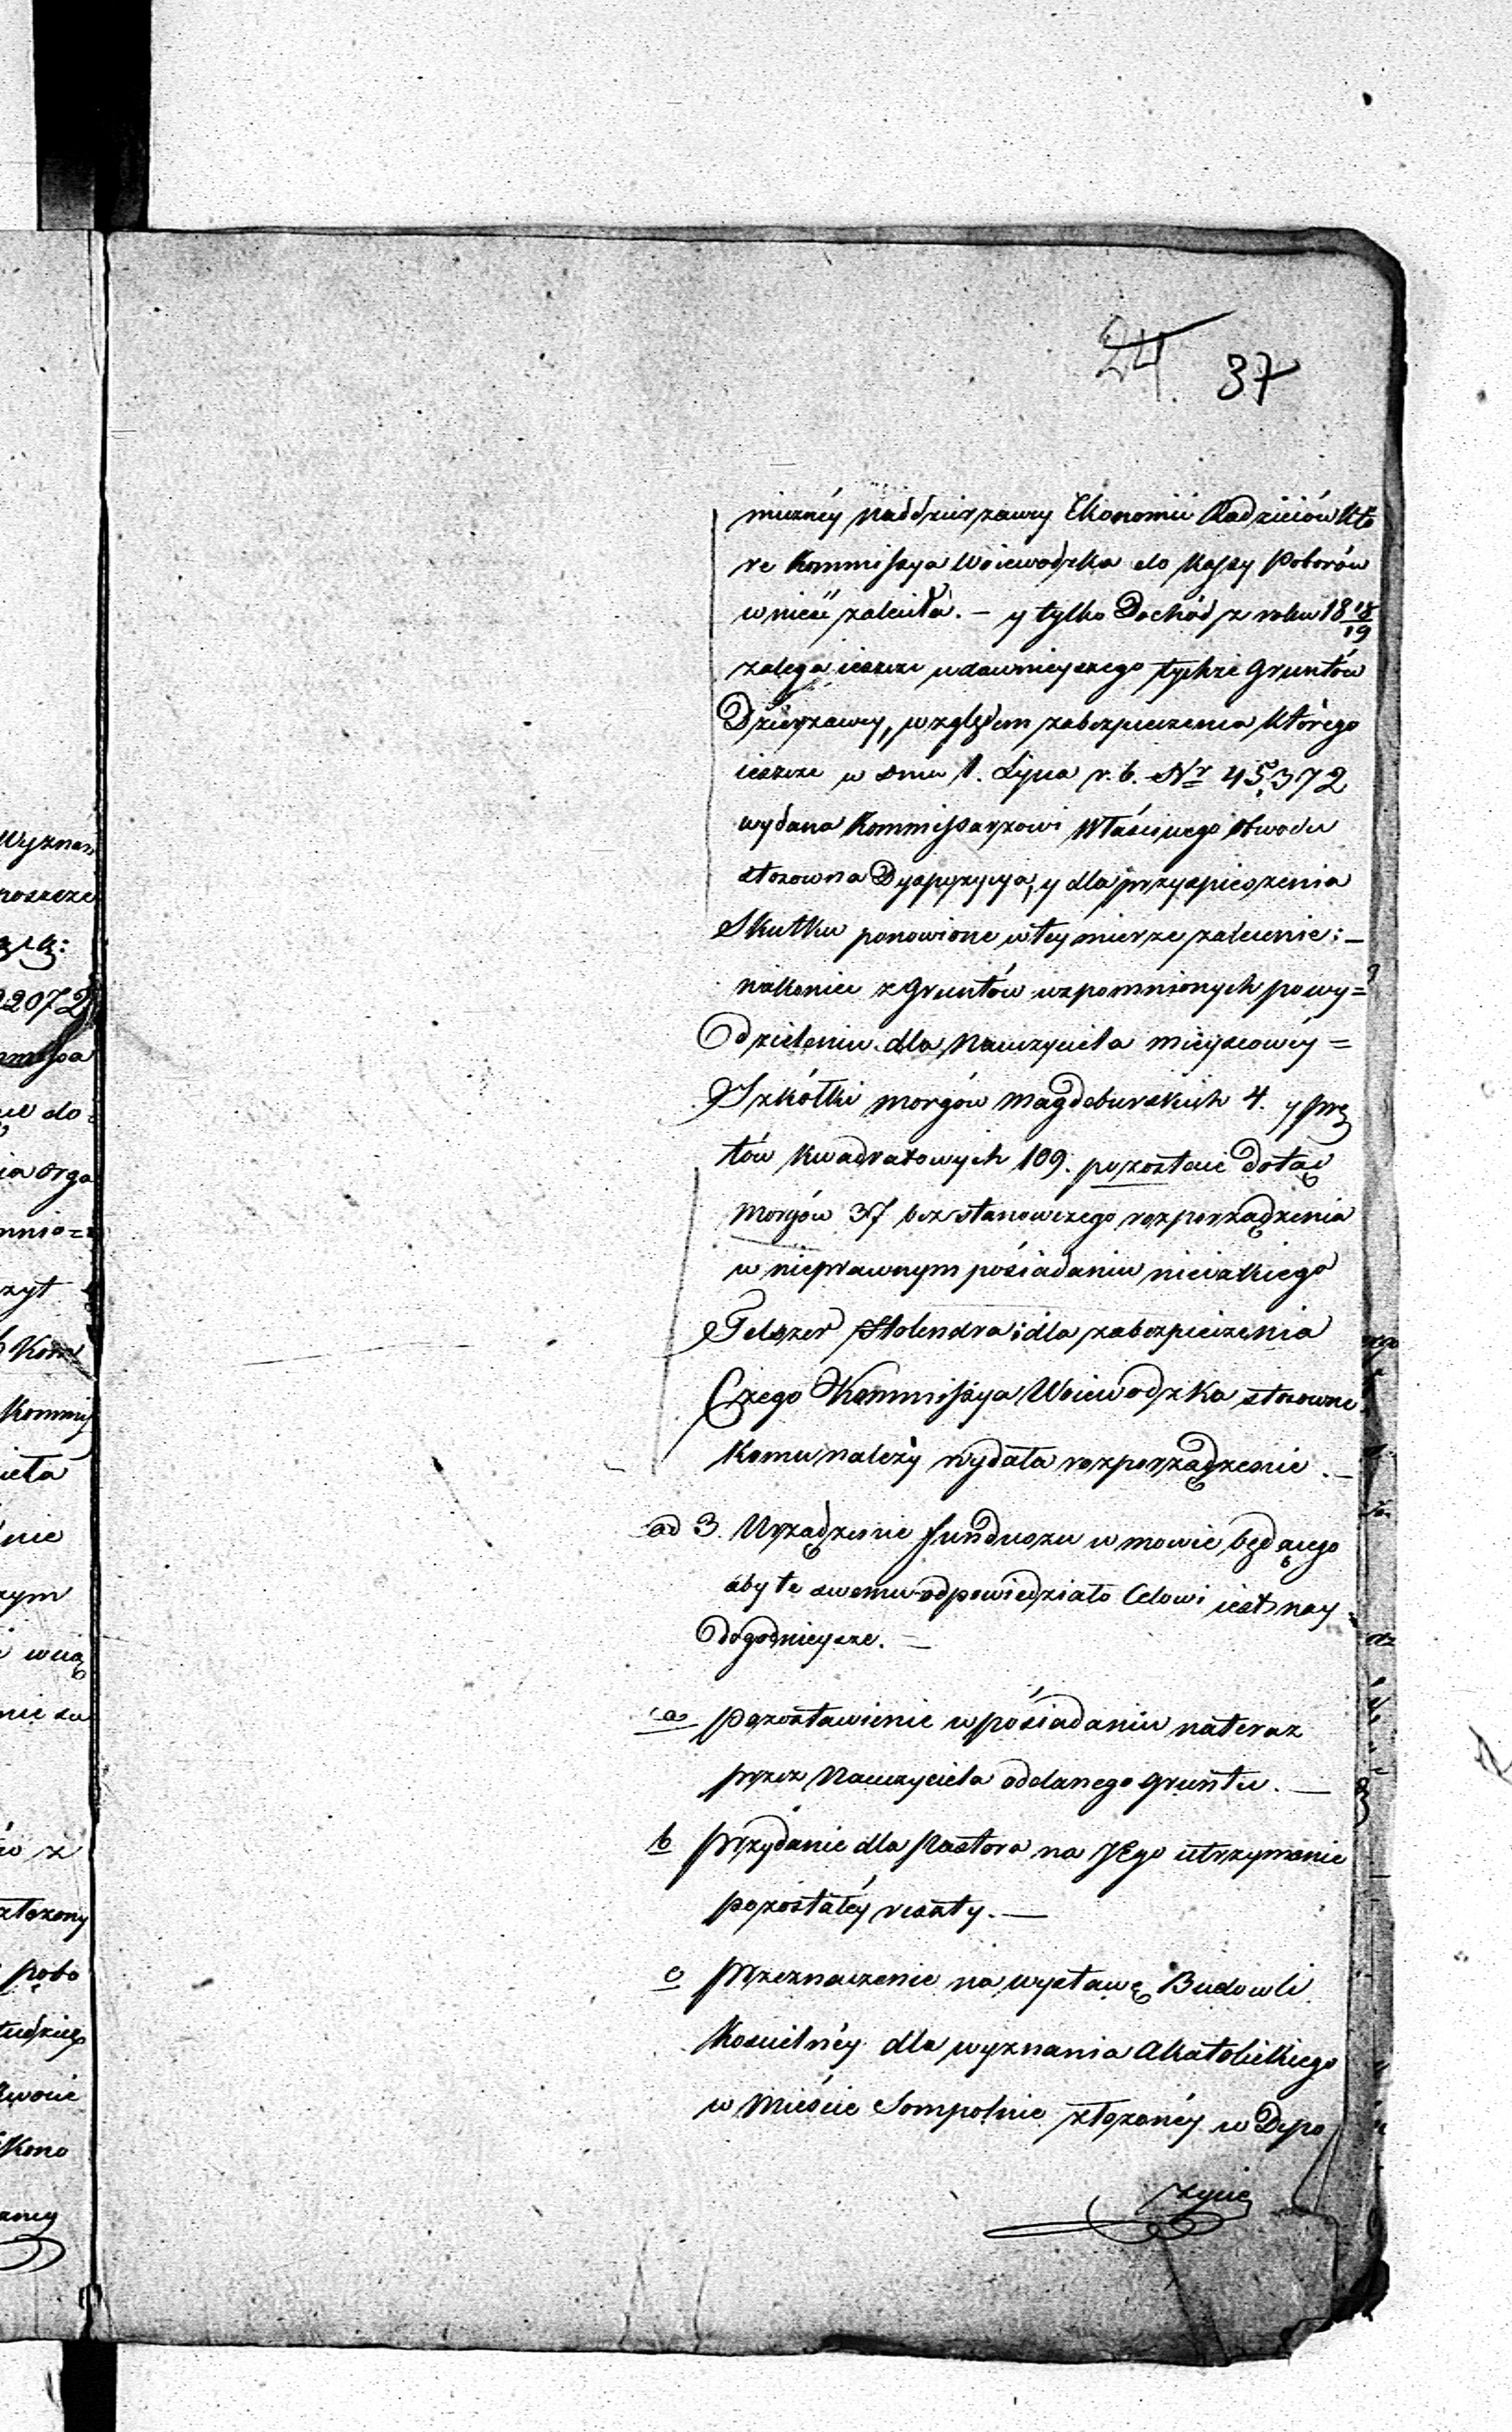 24. 37
miczney Naddzierzawcy Ekonomii Radzieiów Któ
re Kommissya Woiewodzka do Kassy Poborów
wnieść zaleciła. – y tylko Dochód z roku 18 18/19
zalega ieszcze u dawnieyszego tychże Gruntów
Dzierzawcy, względem zabezpieczenia którego
ieszcze w dniu 1. Lipca r. b. Nr 45,372
wydana Kommissarzowi Właściwego Obwodu
stosowna Dyspozycya, y dla przyspieszenia
Skutku ponowione w tey mierze zalecenie: –
nakoniec z Gruntów wzpomnionych po wy=
dzieleniu dla Nauczyciela mieyscowéy =
Szkółki morgów magdeburskich 4. y prę
tów kwadratowych 109. pozostaie dotąd
Morgów 37 bez stanowczego rozporządzenia
w nieprawnym posiadaniu nieiakiego
Felszer Holendra: dla zabezpieczenia
Czego Kommissya Woiewodzka stosowne
komu należy wydała rozporządzenie. –
ad 3. Urządzenie funduszu w mowie będącego
aby te swemu odpowiedziało Celowi iest nay
dogodnieysze. –
a pozostawienie w posiadaniu nateraz
przez Nauczyciela oddanego gruntu. –
b przydanie dla Pastora na JEgo utrzymanie
pozostałéy reszty. –
c przeznaczenie na wystawę Budowli
Kościelnéy dla wyznania Akatolickiego
w Mieście Sompolnie złożonéy w Depo
zycie